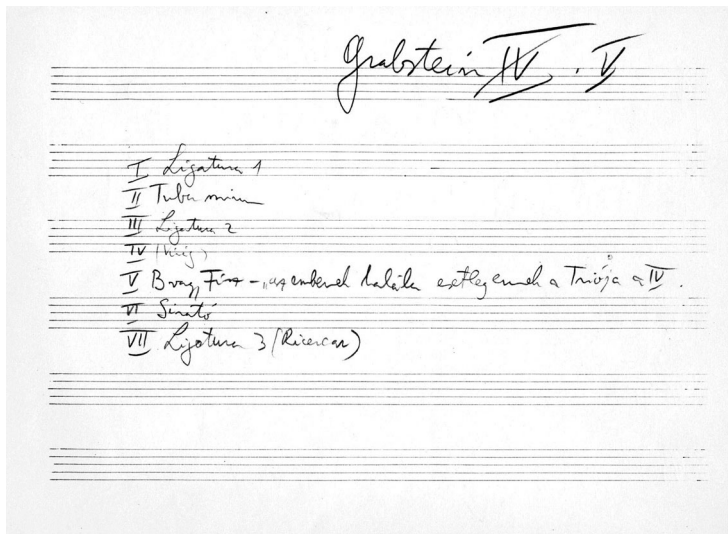 Grabstein IV . V
I Ligatura 1
II Tuba mirum
III Ligatura 2
IV
V B vagy Fisz - „az embernek halála esetleg ennek a Triója a IV.
VI Sirató
VII Ligatura 3 (Ricercar)